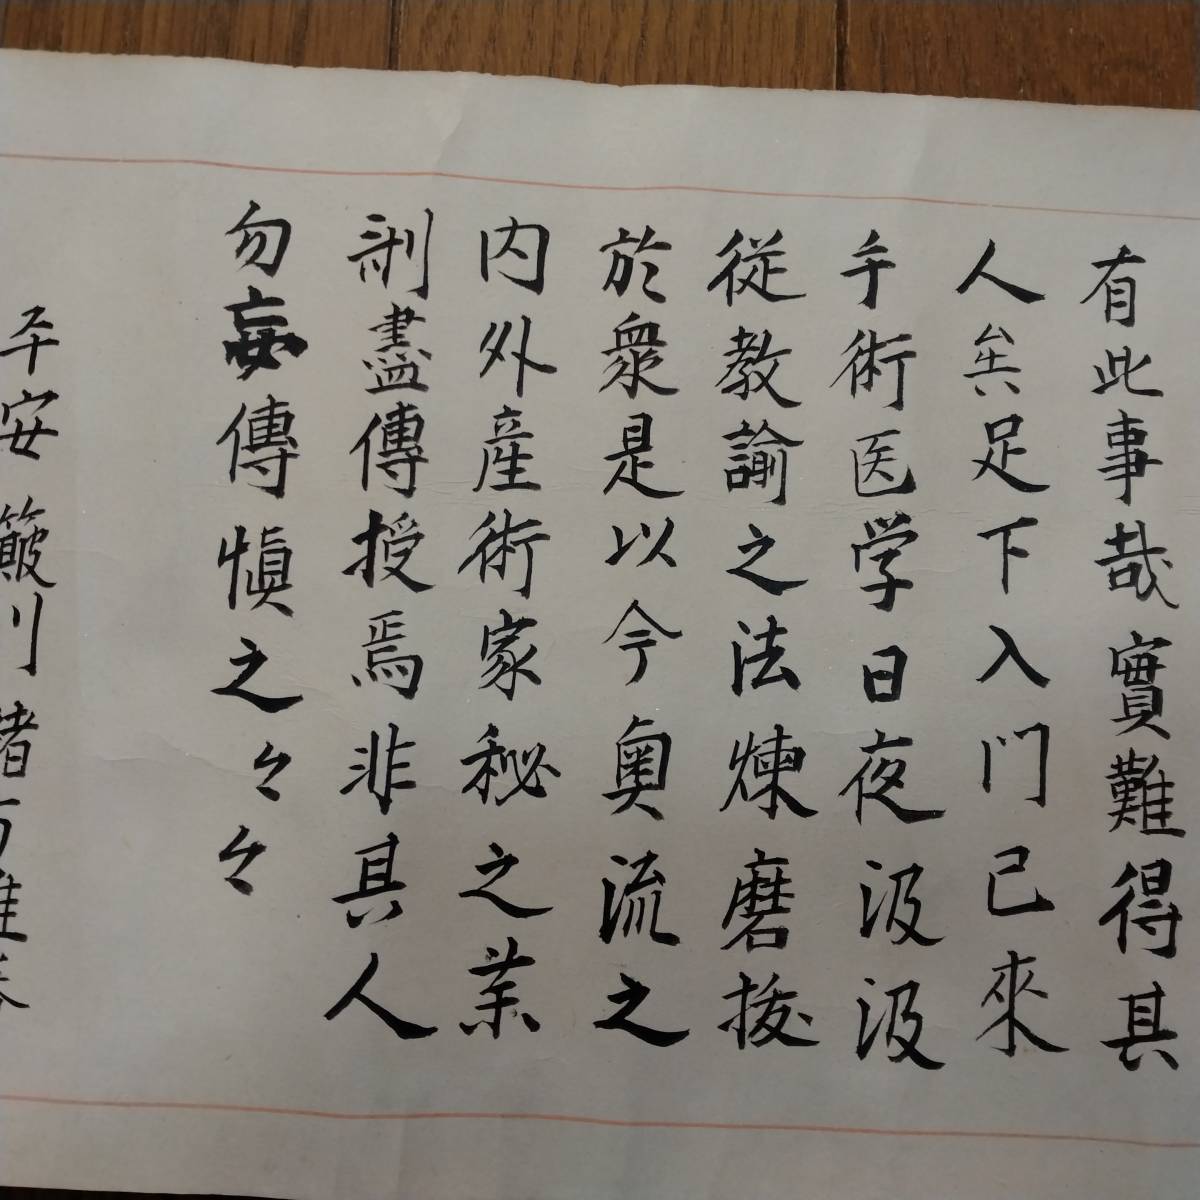 有此事哉實難得其
人矣足下入門已來
手術医学日夜汲汲
従教諭之法煉磨抜
於衆是以今奥流之
内外産術家秘之業
剤盡傳授焉非其人
勿妄傳慎之々々
平安 簸川